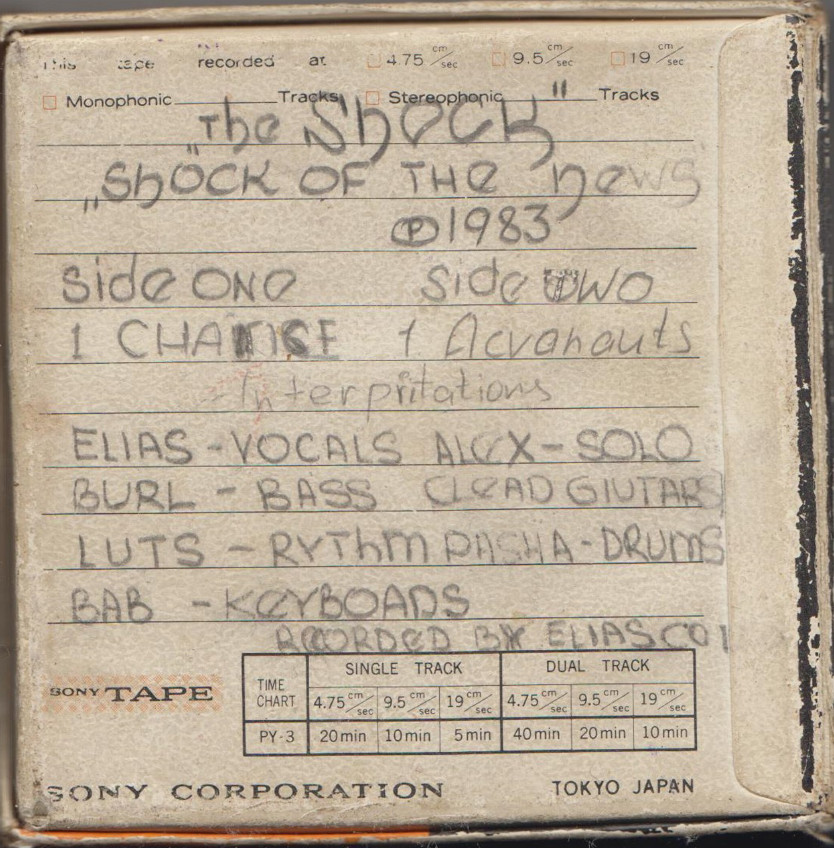 This tape recorded at 4.75 cm/sec 9.5 cm/sec 19 cm/sec
Monophonic Tracks Stereophonic Tracks
„The Shock"
„Shock OF THe news
℗1983
Side ONe Side TWO
1 CHANGE 1 Acvanauts
Interpritations
ELIAS - VOCALS ALeX - SOLO
BURL - BASS LeAD GIUTARS
LUTS - RYThm PASHA - DRUmS
BAB - KeYBOADS
ReCORDED BY ELIAS CO
SONY TAPE
TIME CHART SINGLE TRACK DUAL TRACK
4.75 cm/sec 9.5 cm/sec 19 cm/sec 4.75 cm/sec 9.5 cm/sec 19 cm/sec
PY-3 20min 10min 5min 40min 20min 10min
SONY CORPORATION TOKYO JAPAN